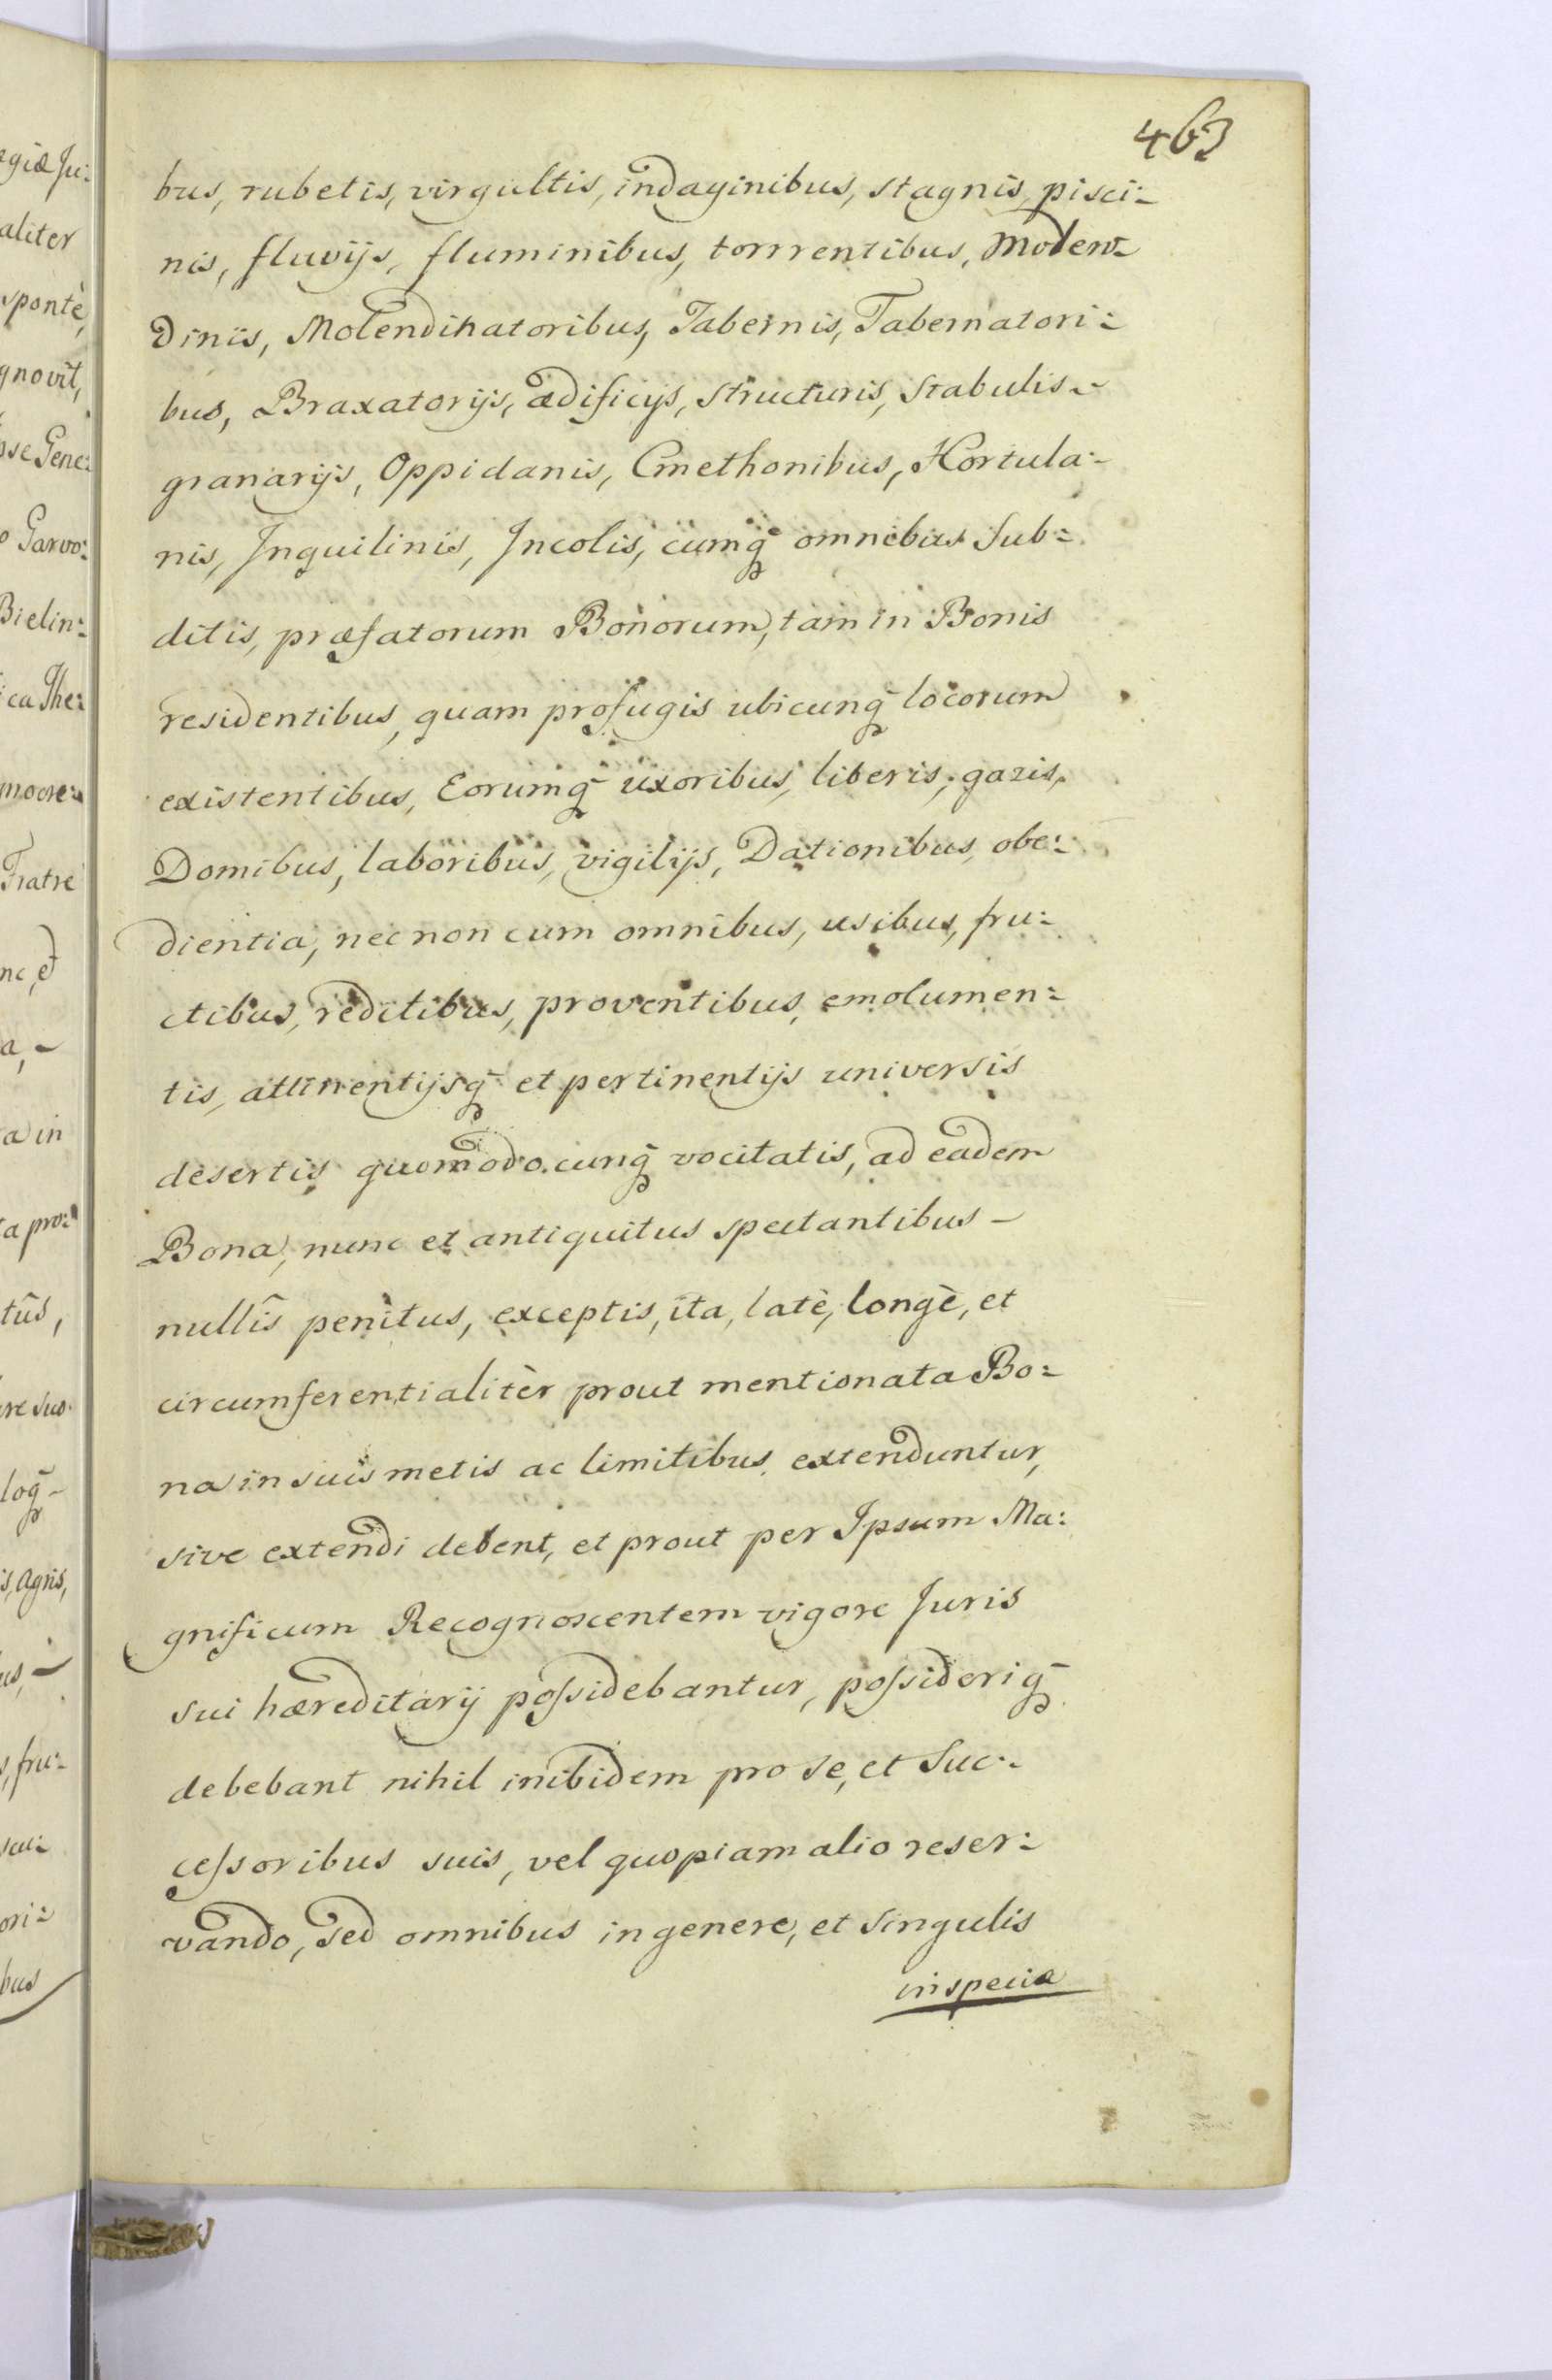 463
bus, rubetis, virgultis, indaginibus, stagnis, pisci:
nis, fluvijs, fluminibus, torrrentibus, Molen:
dinis, Molendinatoribus, Tabernis, Tabernatori:
bus, Braxatorijs, ædificijs, structuris, stabulis
granarijs, Oppidanis, Cmethonibus, Hortula:
nis, Inquilinis, Incolis, cumq̃ omnibus Sub:
ditis, præfatorum Bonorum, tam in Bonis
residentibus, quam profugis ubicunq̃ locorum
existentibus, Eorumq̃ uxoribus, liberis, gazis,
Domibus, laboribus, vigilijs, Dationibus, obe:
dientia, nec non cum omnibus, usibus, fru:
ctibus, reditibus, proventibus, emolumen:
tis, attinentijsq̃ et pertinentijs universis
desertis quomodocunq̃ vocitatis, ad eadem
Bona, nunc et antiquitus spectantibus -
nullis penitus, exceptis, ita, latè, longè, et
circumferentialitèr prout mentionata Bo:
na in suis metis ac limitibus extenduntur,
sive extendi debent, et prout per Ipsum Ma:
gnificum Recognoscentem vigore Juris
sui hæreditarij possidebantur, possideriq̃
debebant nihil inibidem pro se, et Suc:
cessoribus suis, vel quopiam alio reser:
vando, sed omnibus in genere, et singulis
in specie